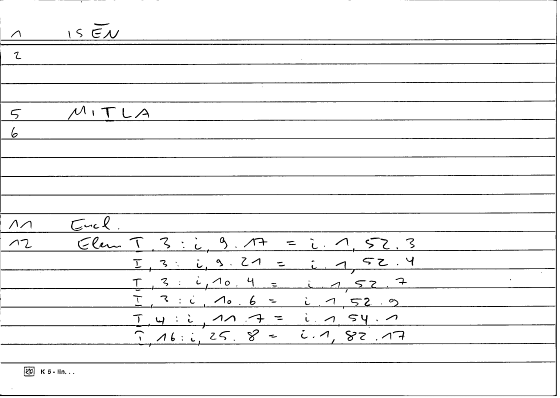 1 ISĒN
2
5 MIṮLA
6
11 Eucl.
12 Elem I, 3 : i, 9.17 = i.1, 52.3
I, 3 : i, 9.21 = i.1, 52.4
I, 3 : i, 10.4 = i.1, 52.7
I, 3 : i, 10.6 = i.1, 52.9
I, 4 : i, 11.7 = i.1, 54.1
I, 16 : i, 25.8 = i.1, 82.17
K 5 - lin. . .